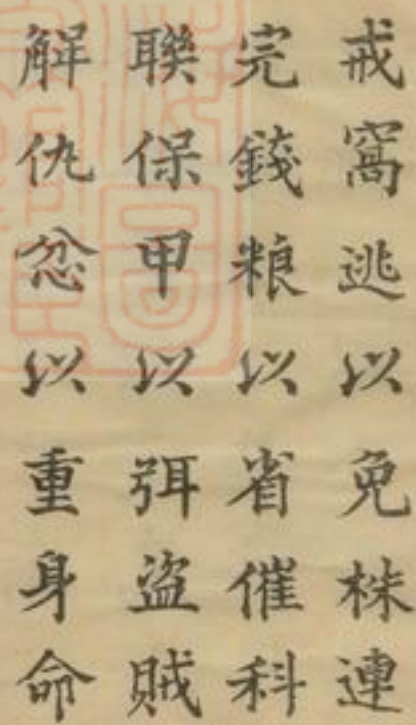 戒窩逃以免株連
完錢粮以省催科
聯保甲以弭盜賊
解仇忿以重身命